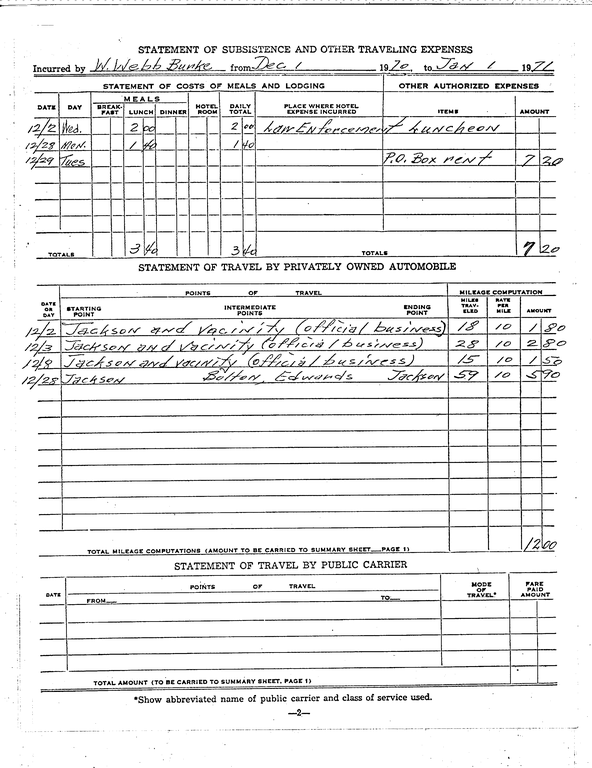 STATEMENT OF SUBSISTENCE AND OTHER TRAVELING EXPENSES
Incurred by W. Webb Burke from Dec 1 1970 to Jan 1 1971
STATEMENT OF COSTS OF MEALS AND LODGING OTHER AUTHORIZED EXPENSES
MEALS
DATE DAY BREAK-FAST LUNCH DINNER HOTEL ROOM DAILY TOTAL PLACE WHERE HOTEL EXPENSE INCURRED ITEMS AMOUNT
12/2 Wed. 2 00 2 00 Law Enforcement Luncheon
12/28 Mon. 1 40 1 40
12/29 Tues P.O. Box rent 7 20
TOTALS 3 40 3 40 TOTALS 7 20
STATEMENT OF TRAVEL BY PRIVATELY OWNED AUTOMOBILE
POINTS OF TRAVEL MILEAGE COMPUTATION
DATE OR DAY STARTING POINT INTERMEDIATE POINTS ENDING POINT MILES TRAV-ELED RATE PER MILE AMOUNT
12/2 Jackson and vacinity (official business) 18 10 1 80
12/3 Jackson and vacinity (official business) 28 10 2 80
12/9 Jackson and vacinity (official business) 15 10 1 50
12/28 Jackson Bolton, Edwards Jackson 59 10 5 90
TOTAL MILEAGE COMPUTATIONS (AMOUNT TO BE CARRIED TO SUMMARY SHEET__PAGE 1) 12 00
STATEMENT OF TRAVEL BY PUBLIC CARRIER
DATE POINTS OF TRAVEL MODE OF TRAVEL* FARE PAID AMOUNT
FROM__ TO__
TOTAL AMOUNT (TO BE CARRIED TO SUMMARY SHEET, PAGE 1)
*Show abbreviated name of public carrier and class of service used.
—2—